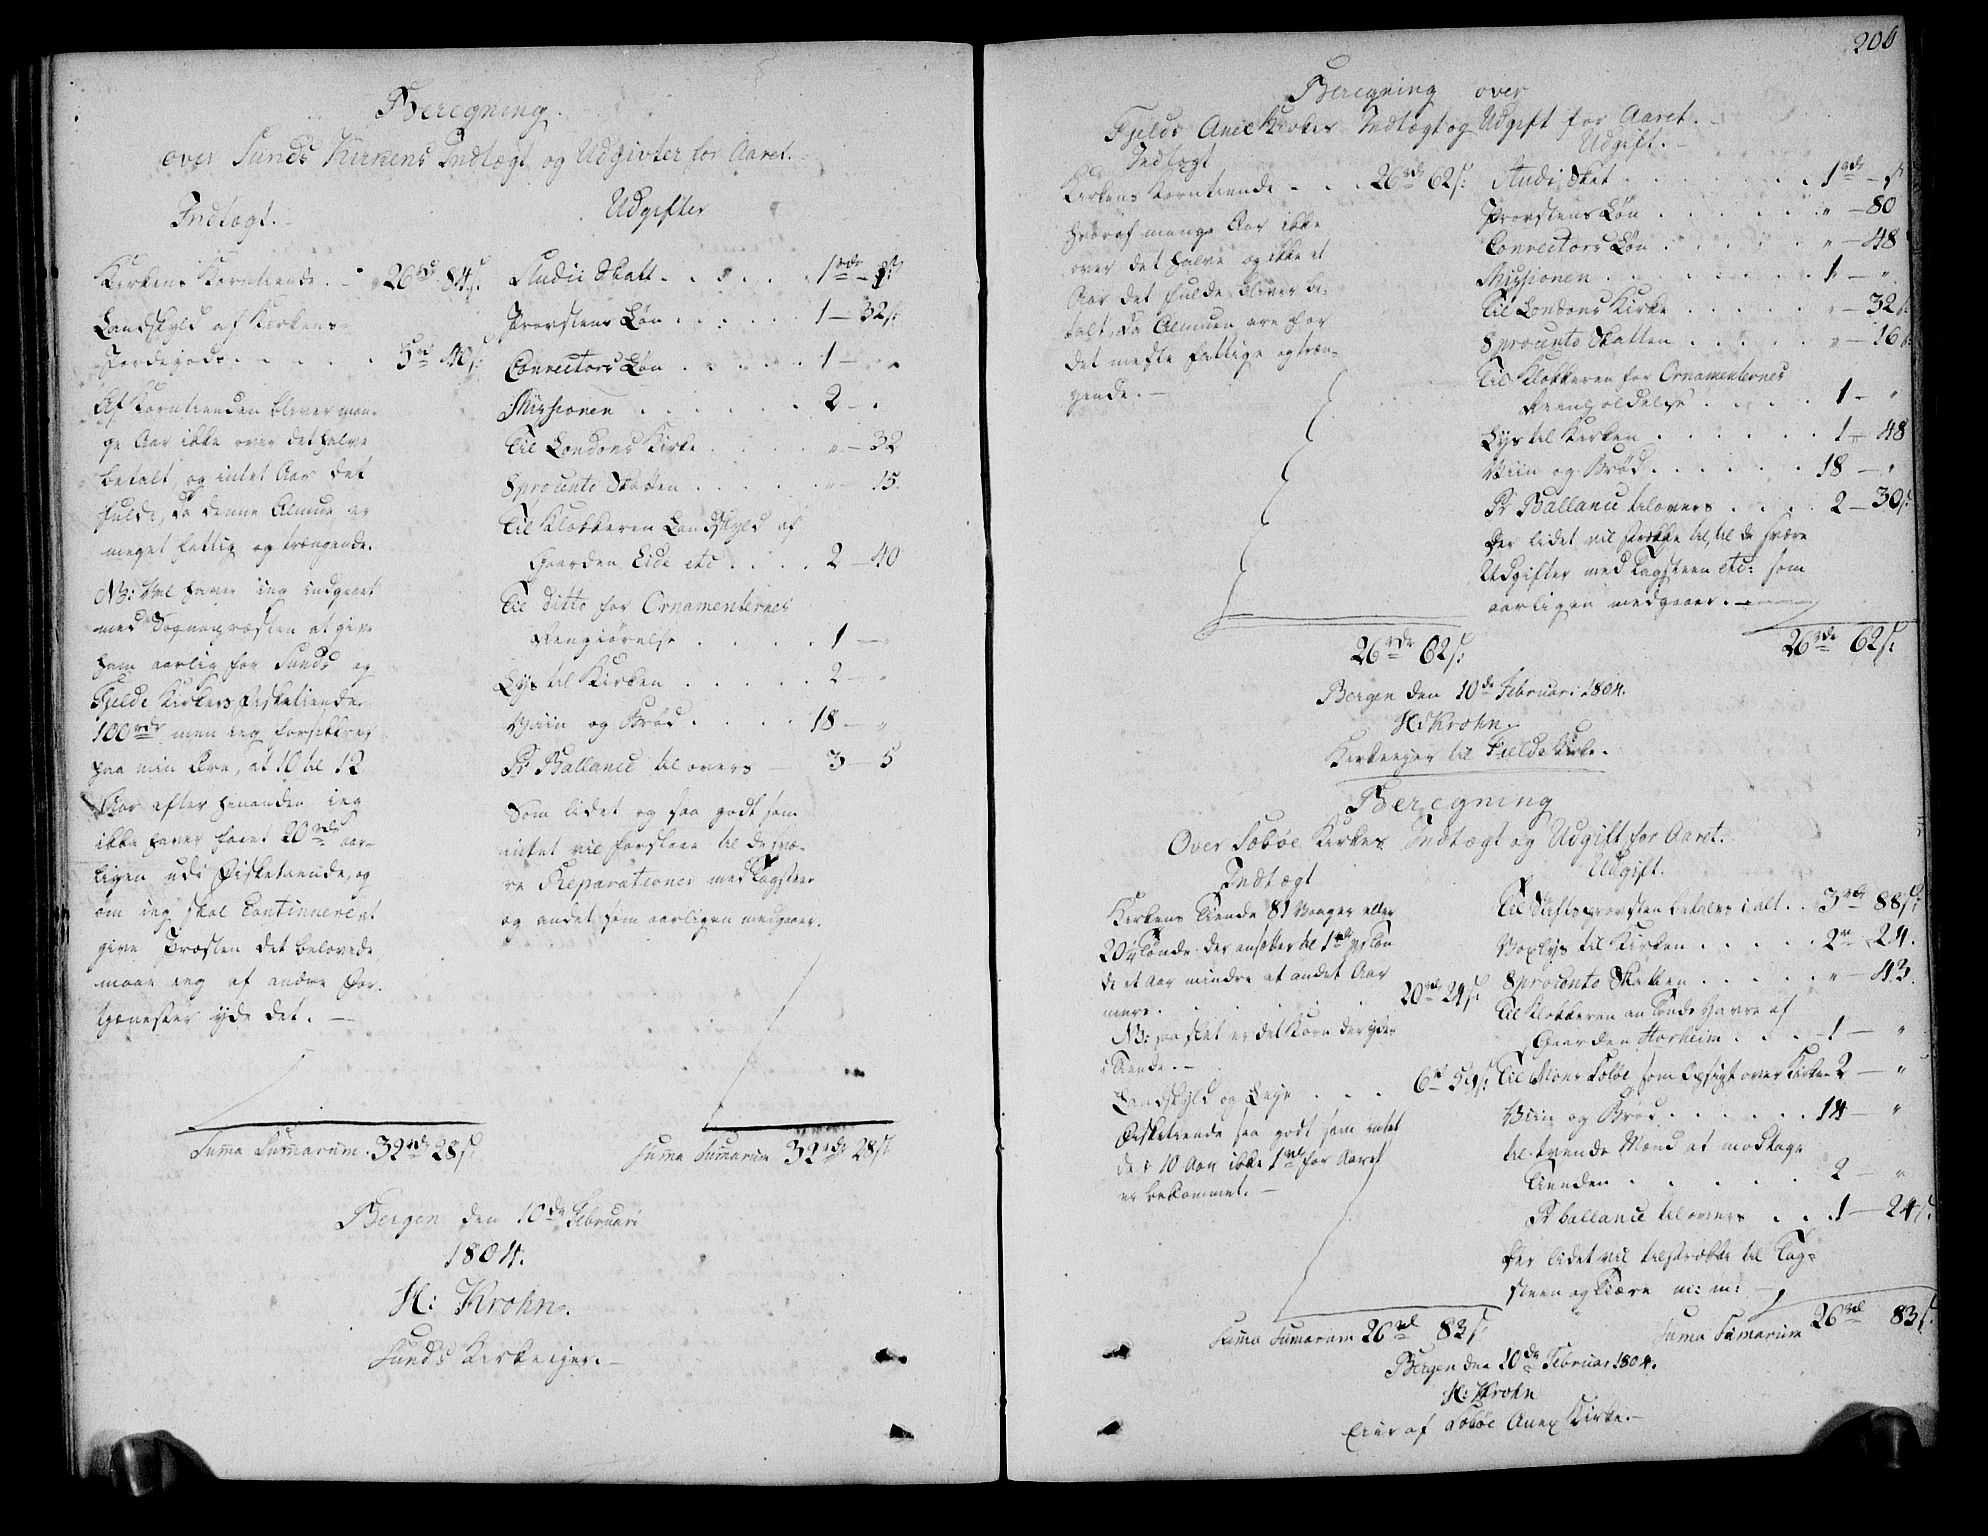 Beregning.
over Sunds Kirkens Indtægt og Udgivter for Aaret.
Indtægt.
Kirkens Korntiende . - 26rd 84s.
Landskyld af Kirkens
Jordegods . . . . . 5rd 40s:
Af Korntienden bliver man-
ge Aar ikke over det halve
betalt, og intet Aar det
fulde, da denne Almue er
meget fattig og trængende.
NB: Vel haver ieg indgaaet
med Sognepræsten at give
ham aarlig for Sunds og
Fjelds Kirkers Fisketiende
100rdr men ieg forsikkrer
paa min Ære, at 10 til 12
Aar efter hinanden ieg
ikke haver faaet 20rdr aar-
ligen udi Fisketiende, og
om ieg skal Continuere at
give Præsten det belovede,
maae ieg af andre For-
tienester yde det. —
Suma Sumarum . 32rdr 28s
Udgifter
Studii Skatt . . . . . 1rdr - s:
Provstens Løn . . . . . 1 — 32s:
Conrectors Løn . . . . . 1 — "
Missionen . . . . . 2 — "
Til Londons Kirke . . . . " — 32
8procento Skatten . . . . " — 15.
Til Klokkeren Landskyld af
Gaarden Eide etc . . . . 2 — 40
Til Ditto for Ornamenternes
Rengiørelse . . . . . 1 — "
Lys til Kirken . . . . . 2 — "
Viin og Brød . . . . 18 — "
Pr Ballance til overs — 3 — 5
Som lidet og saa godt som
intet vil forslaae til de svæ-
re Reparationer med Tagsteen
og andet som aarligen medgaaer.
Suma Sumarum 32rdr 28s
Bergen den 10de Februari
1804.
H: Krohn.
Sunds Kirkeeyer. —
206
Beregning over
Fjelds Anex Kirkes Indtægt og Udgift for Aaret. —
Indtægt
Kirkens Korntiende - . . 26rdr 62s:
hvoraf mange Aar ikke
over det halve og ikke et
Aar det fulde bliver be-
talt, da Almuen ere for
det meste fattige og træn-
gende. —
26rdr 62s:
Udgift. —
Studi Skat . . . . . . . 1rdr - s
Provstens Løn . . . . . . " — 80
Conrectors Løn . . . . . " — 48
Missionen . . . . . . . 1 — "
Til Londons Kirke . . . . . " — 32s.
8procento Skatten . . . . . " — 16s:
Til Klokkeren for Ornamenternes
Reenholdelse . . . . . 1 — "
Lys til Kirken . . . . . . 1 — 48
Viin og Brød . . . . . . 18 — "
Pr Ballance tilovers . . . . 2 — 30s:
Der lidet vil strække til, til de svære
Udgifter med Tagsteen etc: som
aarligen medgaaer. —
26rdr 62s:
Bergen den 10de Februari 1804.
H: Krohn.
Kirkeeyer til Fields Kirke.
Beregning
Over Solbøe Kirkes Indtægt og Udgift for Aaret.
Indtægt
Kirkens Tiende 81 Vaager eller
20¼ Tønde der ansættes til 1rdr pr Tøn
de et Aar mindre et andet Aar
mere. . . . . . . . 20rd 24s:
NB: saa slet er det Korn der ydes
i Tiende. —
Landskyld og Leye . . . 6rd 59s:
Fisketiende saa godt som intet
da i 10 Aar ikke 1rdr for Aaret
er bekommet. —
Suma Sumarum 26rd 83s:
Udgift.
Til Stiftsprovsten betales i alt . . 3rdr 88s:
Voxlys til Kirken . . . . . 2rd 24.
8procento Skatten . . . . . " — 43.
Til Klokkeren an Tønde Havre af
Gaarden Horsheim . . . . 1 — "
Til Mons Solbøe som Opsigt over Kirken 2 — "
Viin og Brød . . . . . . 14 — "
til tvende Mænd at modtage
Tienden . . . . . . 2 — "
Pr ballance tilovers . . . 1 — 24s:
Der lidet vil tilstrække til Tag-
steen og Tiære m: m: —
Suma Sumarum 26rd 83s.
Bergen den 10de Februar 1804.
H: Krohn
Eier af Solbøe Anex Kirke. —